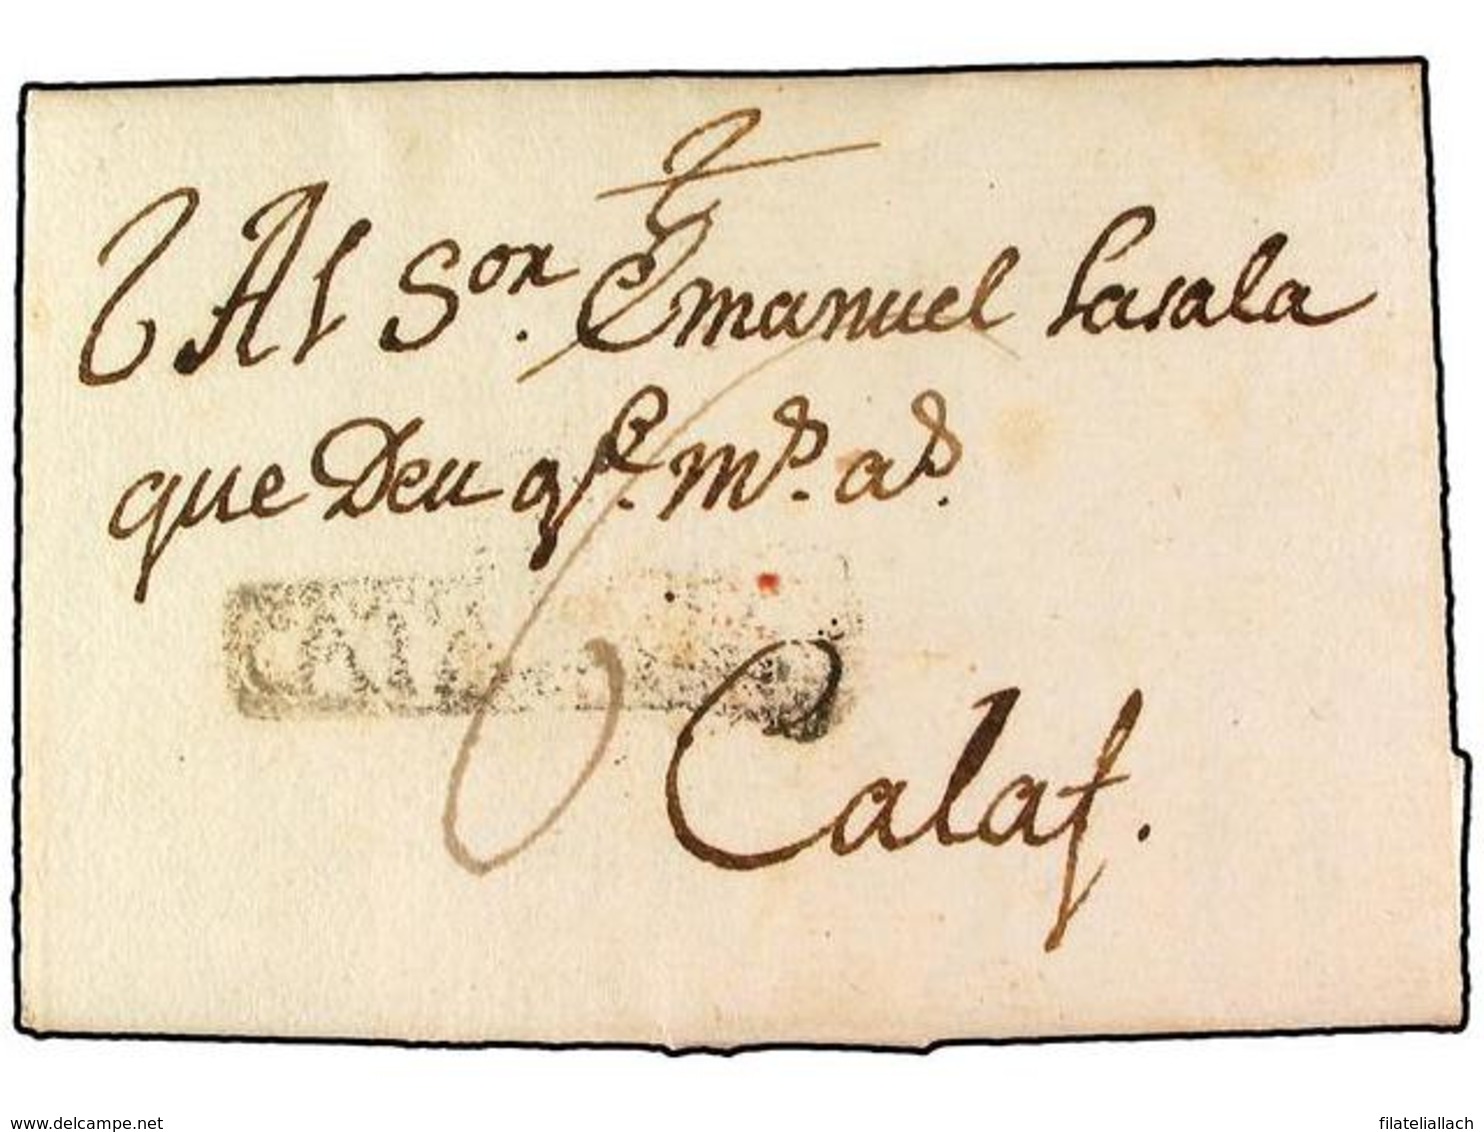 Al Sor. Emanuel Lasala
que Deu gᵉ. mˢ. aˢ.
CATA
6
Calaf.
www.delcampe.net
filateliallach